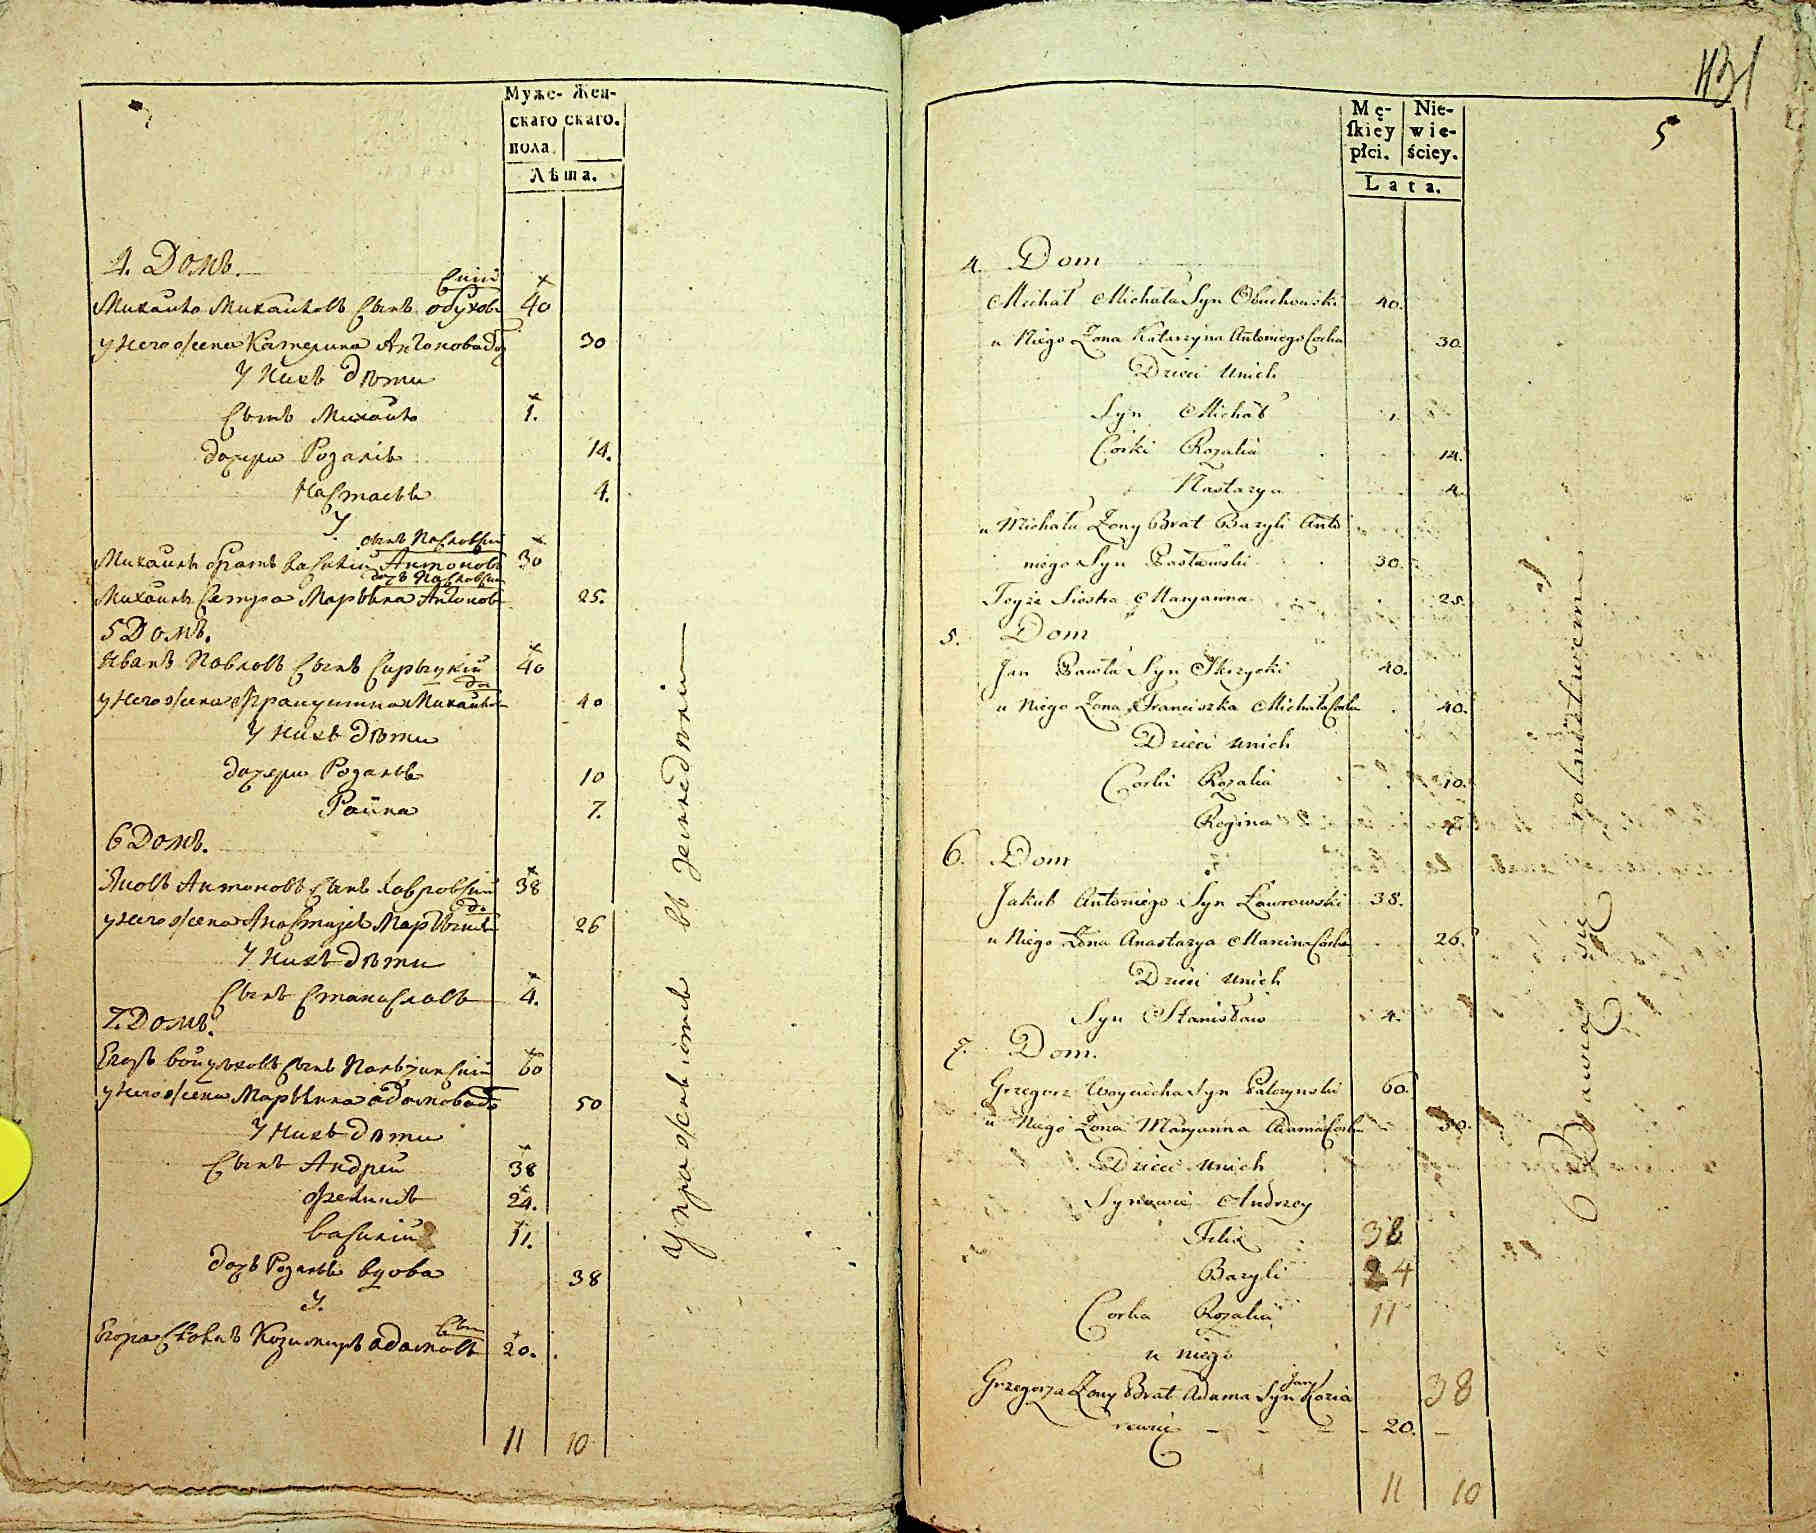 Муже- Жен-
скаго скаго.
пола.
Лѣта.
4. Домъ.
Михаило Михаиловъ Сынъ Обухов
ский
40
у него жена Катерина Антонова до
30
У нихъ дѣти
Сынъ Михаило
1.
дочери Розалія
14.
Настасья
4.
У
сынъ Пасловски
Михаилы братъ Василий Антоновъ
30
дочь Пасловски
Михаилы Сестра Марьяна Антонов
25.
5 Домъ.
Иванъ Павловъ Сынъ Скрыцкій
40
у него жена Францишка Михаилов
до
40
У нихъ дѣти
дочери Розалья
10
Раина
7.
6 Домъ.
Яковъ Антоновъ сынъ Лавровский
38
у него жена Анастазія
до
26
У нихъ дѣти
Сынъ Станиславъ
4.
7. Домъ.
Егоръ Войцеховъ Сынъ
60
у него жена Марьяна Адамова до
50
У нихъ дѣти
Сынъ Андрей
38
Феликсъ
24.
Василий
11.
дочь Розалья вдова
38
У.
Егора Казимиръ Адамовъ
Сынъ
20.
11 10
Упражняются въ земледѣліи
1131
5
Mę- Nie-
skiey wie-
płci. ściey.
Lata.
4. Dom
Michał Michała Syn Obuchowski 40.
u Niego Żona Katarzyna Antoniego Corka 30
Dzieci u nich
Syn Michał 1.
Corki Rozalia 14.
Nastazya 4.
u Michała Żony Brat Bazyli Anto
niego Syn Pasławski 30.
Teyże Siostra Maryanna 25.
5. Dom
Jan Pawła Syn Skrzycki 40.
u Niego Żona Franciszka Michała Corka 40.
Dzieci u nich
Corki Rozalia 10.
Regina 7.
6. Dom
Jakub Antoniego Syn Ławrowski 38.
u Niego Żona Anastazya Marcina Corka 26.
Dzieci u nich
Syn Stanisław 4.
7. Dom.
Grzegorz Woyciecha Syn Palczynski 60.
u Niego Żona Maryanna Adama Corka 50.
Dzieci u nich
Synowie Andrzey
Felix 38
Bazyli 24
Corka Rozalia 11
u niego
Grzegorza Żony Brat Adama Syn 38
20.
11 10
Bawią się rolnictwem